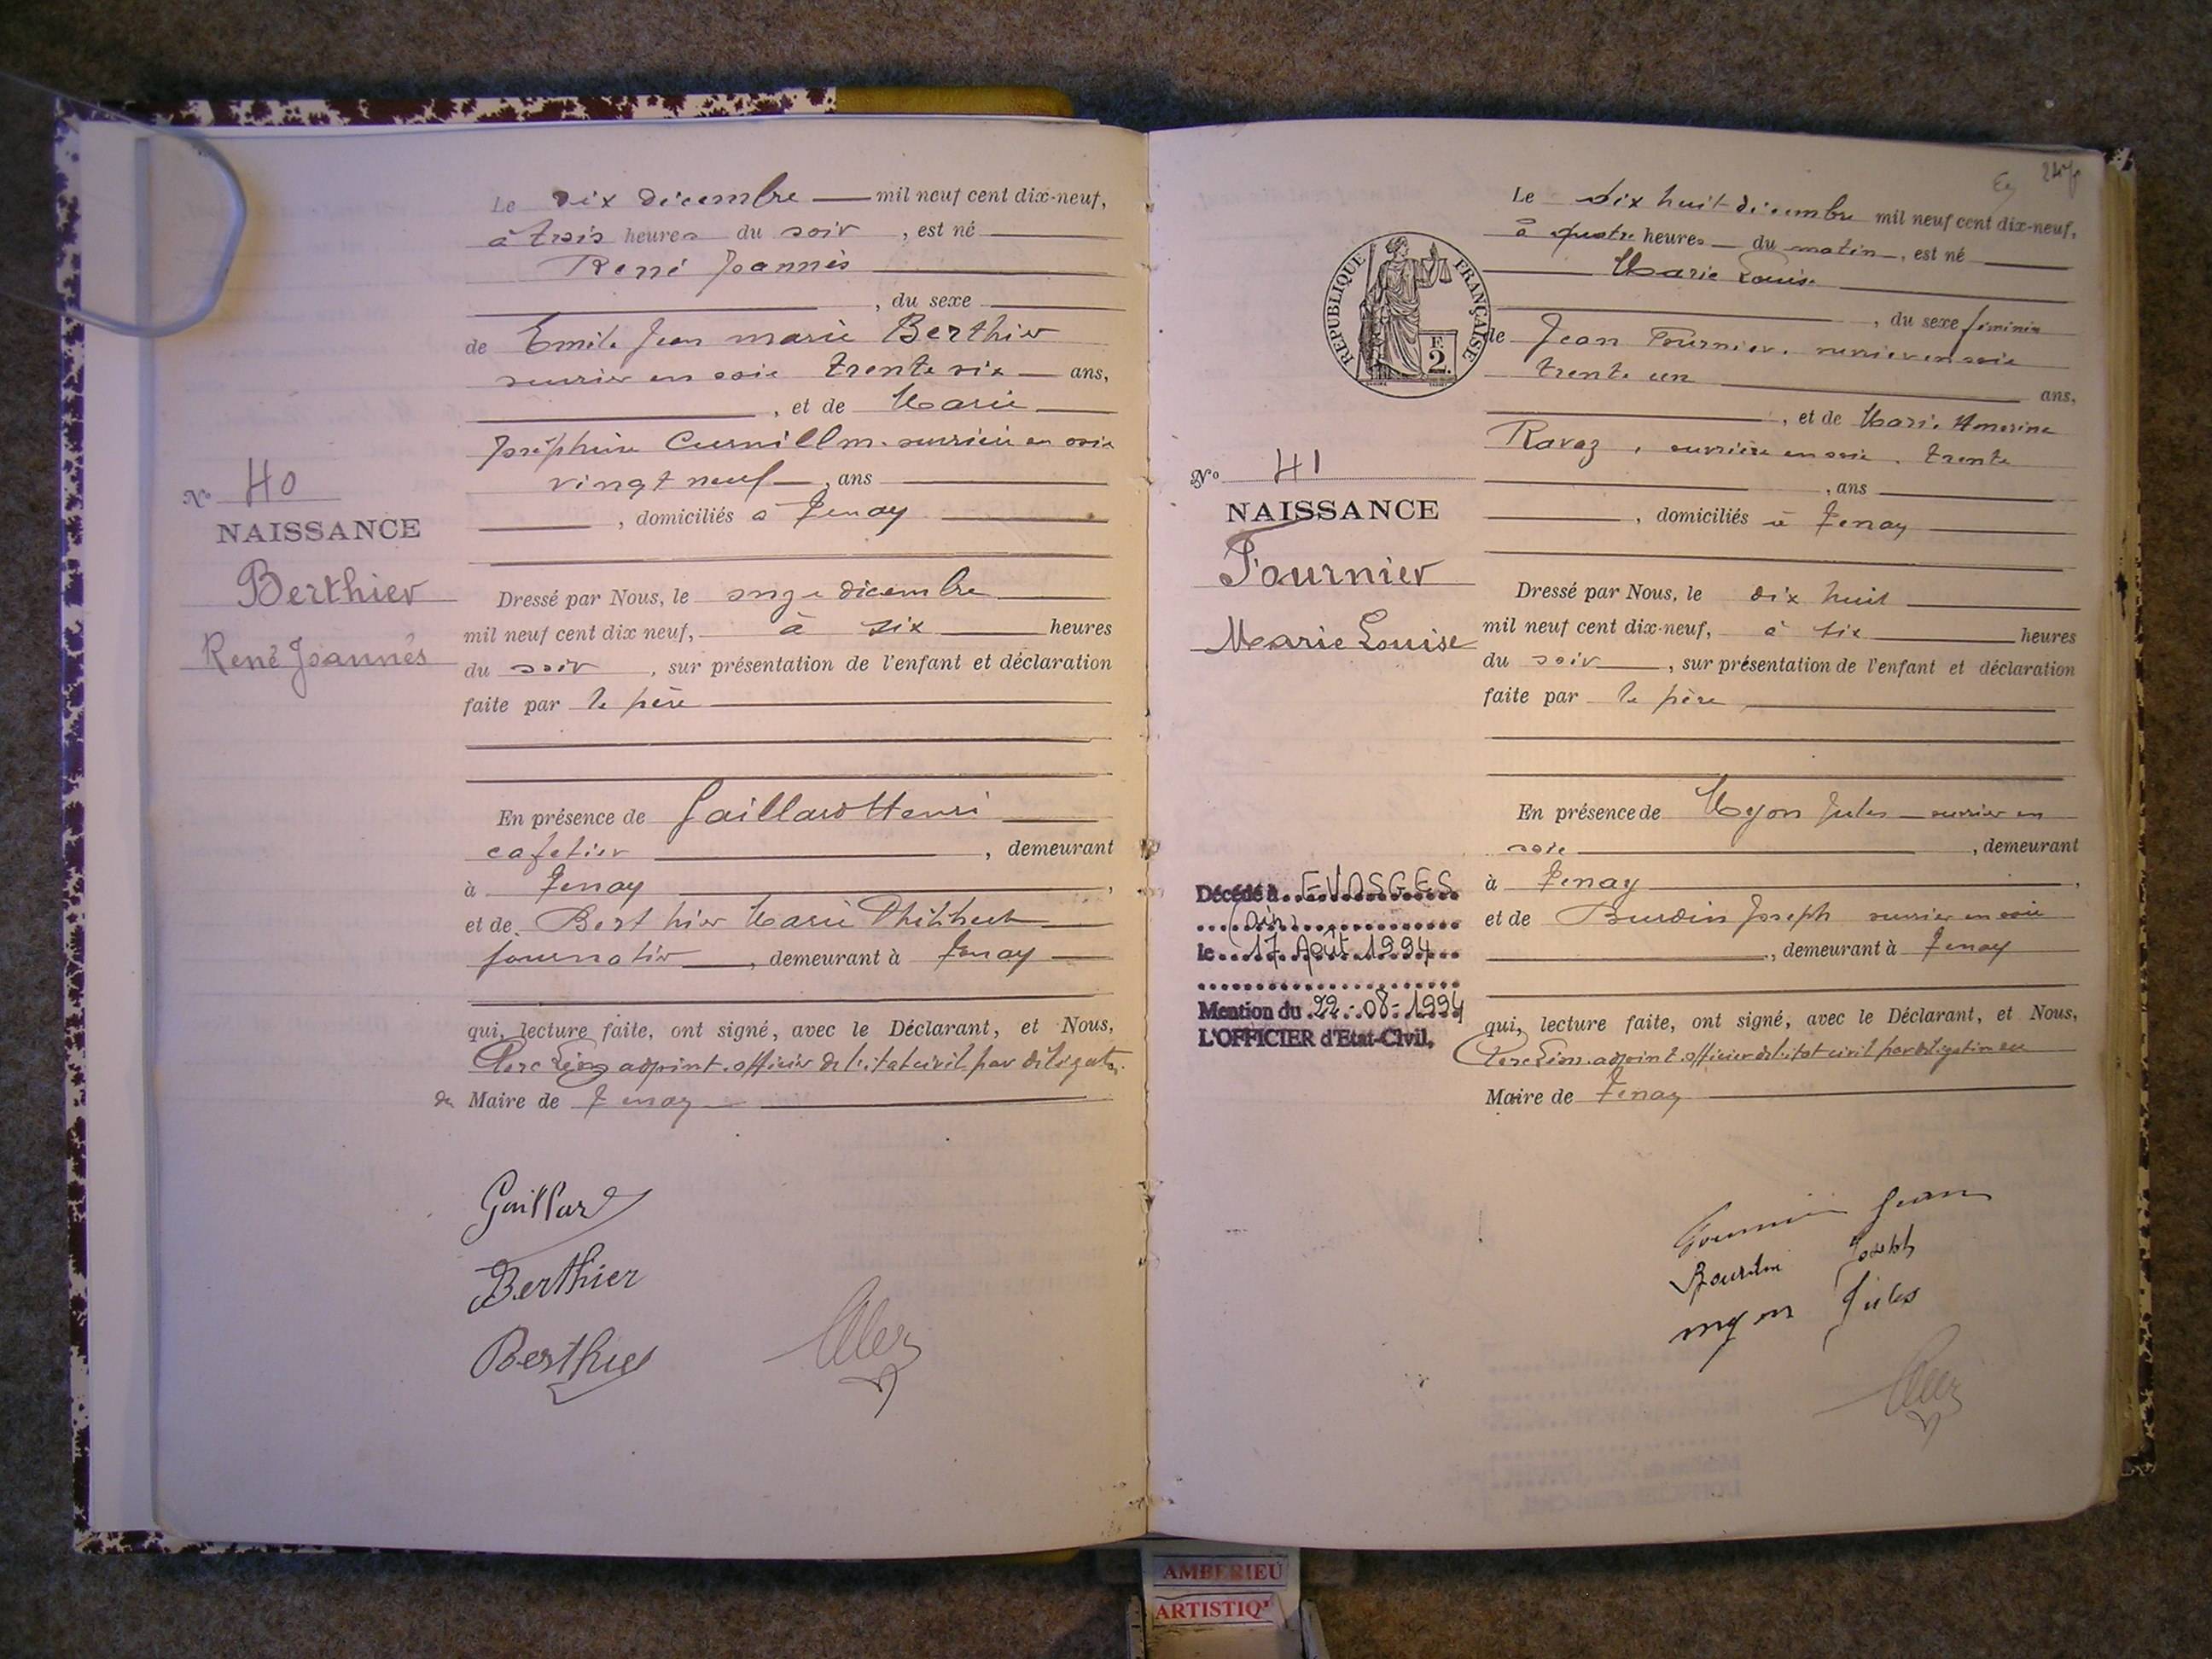 Le dix décembre mil neuf cent dix-neuf,
à trois heures du soir, est né
René Joannès
, du sexe
de Emile Jean marie Berthier
ouvrier en soie trente six ans,
, et de Marie
Joséphine ouvrière en soie
vingt neuf, ans
, domiciliés à Tenay
No 40
NAISSANCE
Berthier
René Joannès
Dressé par Nous, le onze décembre
mil neuf cent dix neuf, à six heures
du soir, sur présentation de l'enfant et déclaration
faite par le père
En présence de Gaillard Henri
cafetier, demeurant
à Tenay,
et de Berthier Marie Philibert
journalier, demeurant à Tenay
qui, lecture faite, ont signé, avec le Déclarant, et Nous,
adjoint officier de l'état civil par délégation
du Maire de Tenay
Gaillard
Berthier
Berthier
Le dix huit décembre mil neuf cent dix-neuf,
à quatre heures du matin, est né
Marie Louise
, du sexe féminin
de Jean Fournier, ouvrier en soie
trente un ans,
, et de Marie
Ravaz, ouvrière en soie, trente
, ans
, domiciliés à Tenay
REPUBLIQUE FRANÇAISE
F.
2.
No 41
NAISSANCE
Fournier
Marie Louise
Dressé par Nous, le dix huit
mil neuf cent dix-neuf, à six heures
du soir, sur présentation de l'enfant et déclaration
faite par le père
En présence de Myon Jules ouvrier en
soie, demeurant
à Tenay,
et de Burdin Joseph ouvrier en soie
, demeurant à Tenay
qui, lecture faite, ont signé, avec le Déclarant, et Nous,
adjoint officier de l'état civil par délégation du
Maire de Tenay
Décédé à EVOSGES
(Ain)
le 17 Août 1994
Mention du 22-08-1994
L'OFFICIER d'Etat-Civil,
Fournier Jean
Bourdin Joseph
myon Jules
AMBERIEU
ARTISTIQ'